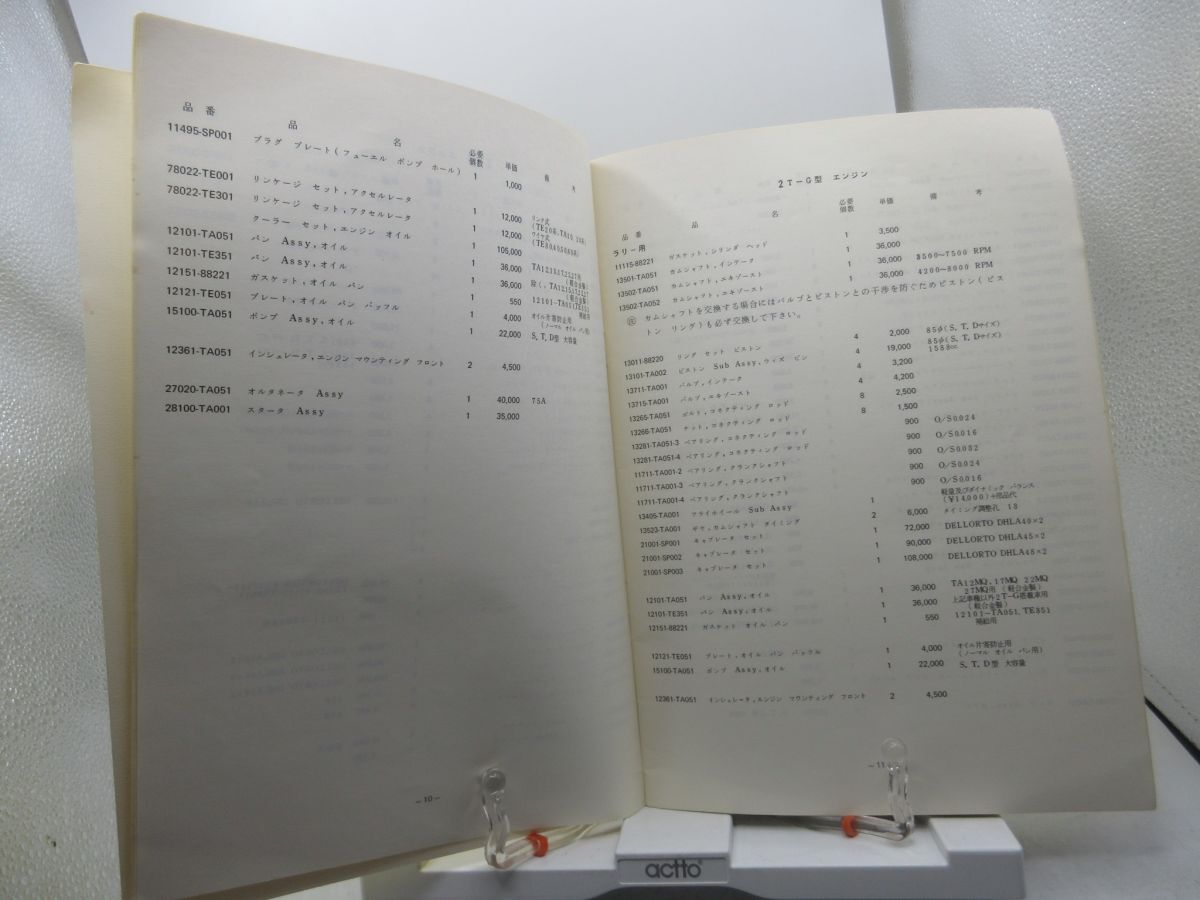 品番 品 名 必要個数 単価 備 考
11495-SP001 プラグ プレート(フューエル ポンプ ホール) 1 1,000
78022-TE001 リンケージ セット,アクセルレータ 1 12,000 リンク式
78022-TE301 リンケージ セット,アクセルレータ 1 12,000 ワイヤ式
クーラー セット,エンジン オイル 1 105,000
12101-TA051 パン Assy,オイル 1 36,000 (軽合金製)
12101-TE351 パン Assy,オイル 1 36,000 (軽合金製)
12151-88221 ガスケット,オイル パン 1 550 12101-TA051(TE351) 補給用
12121-TE051 プレート,オイル パン バッフル 1 4,000 オイル片寄防止用 (ノーマル オイル パン用)
15100-TA051 ポンプ Assy,オイル 1 22,000 S,T,D型 大容量
12361-TA051 インシュレータ,エンジン マウンティング フロント 2 4,500
27020-TA051 オルタネータ Assy 1 40,000 75A
28100-TA001 スタータ Assy 1 35,000
-10-
2T-G型 エンジン
品番 品 名 必要個数 単価 備 考
ラリー用
11115-88221 ガスケット,シリンダ ヘッド 1 3,500
13501-TA051 カムシャフト,インテーク 1 36,000
13502-TA051 カムシャフト,エキゾースト 1 36,000 8500~7500 RPM
13502-TA052 カムシャフト,エキゾースト 1 36,000 4200~8000 RPM
注 カムシャフトを交換する場合にはバルブとピストンとの干渉を防ぐためピストン(ピストン リング)も必ず交換して下さい。
13011-88220 リング セット ピストン 4 2,000 85φ(S,T,Dサイズ)
13101-TA002 ピストン Sub Assy,ウィズ ピン 4 19,000 85φ(S,T,Dサイズ) 1588cc
13711-TA001 バルブ,インテーク 4 3,200
13715-TA001 バルブ,エキゾースト 4 4,200
13265-TA051 ボルト,コネクティング ロッド 8 2,500
13266-TA051 ナット,コネクティング ロッド 8 1,500
13281-TA051-3 ベアリング,コネクティング ロッド 900 O/S0.024
13281-TA051-4 ベアリング,コネクティング ロッド 900 O/S0.016
11711-TA001-2 ベアリング,クランクシャフト 900 O/S0.032
11711-TA001-3 ベアリング,クランクシャフト 900 O/S0.024
11711-TA001-4 ベアリング,クランクシャフト 900 O/S0.016
13405-TA001 フライホイール Sub Assy 1 軽量及びダイナミック バランス (¥14,000)+部品代
13523-TA001 ギヤ,カムシャフト タイミング 2 6,000 タイミング調整孔 13
21001-SP001 キャブレータ セット 1 72,000 DELLORTO DHLA40×2
21001-SP002 キャブレータ セット 1 90,000 DELLORTO DHLA45×2
21001-SP003 キャブレータ セット 1 108,000 DELLORTO DHLA48×2
12101-TA051 パン Assy,オイル 1 36,000 TA12MQ,17MQ 22MQ 27MQ用 (軽合金製)
12101-TE351 パン Assy,オイル 1 36,000 上記車種以外2T-G搭載車用 (軽合金製)
12151-88221 ガスケット オイル パン 1 550 12101-TA051,TE351 補給用
12121-TE051 プレート,オイル パン バッフル 1 4,000 オイル片寄防止用 (ノーマル オイル パン用)
15100-TA051 ポンプ Assy,オイル 1 22,000 S,T,D型 大容量
12361-TA051 インシュレータ,エンジン マウンティング フロント 2 4,500
-11-
actto